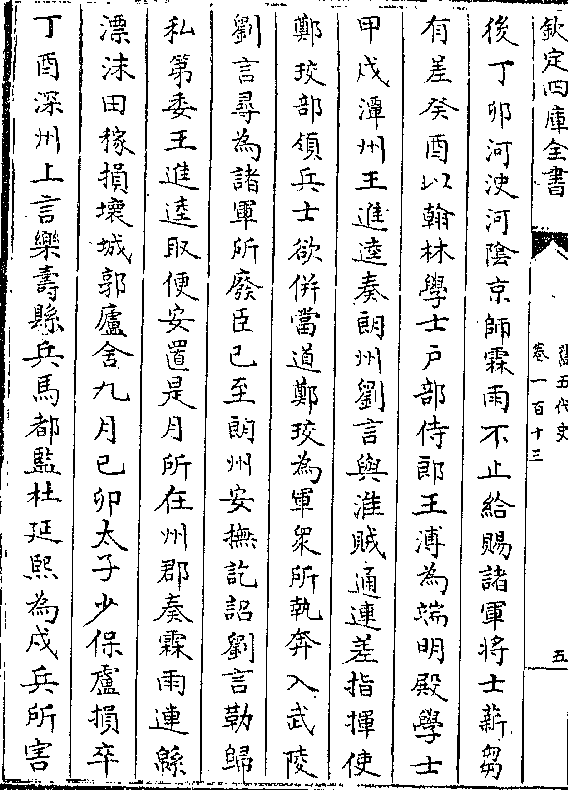 欽定四庫全書
舊五代史
卷一百十三
五
後丁卯河決河陰京師霖雨不止給賜諸軍將士薪芻
有差癸酉以翰林學士戶部侍郎王溥為端明殿學士
甲戌潭州王進逵奏朗州劉言與淮賊通連差指揮使
鄭珓部領兵士欲併當道鄭珓為軍衆所執奔入武陵
劉言尋為諸軍所廢臣已至朗州安撫訖詔劉言勒歸
私第委王進逵取便安置是月所在州郡奏霖雨連緜
漂沫田稼損壞城郭廬舍九月己卯太子少保盧損卒
丁酉深州上言樂壽縣兵馬都監杜延熙為戍兵所害